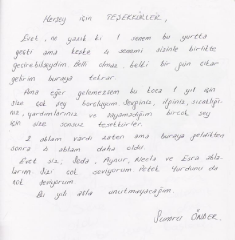 Herşey için TEŞEKKÜRLER,
Evet, ne yazık ki 1 senem bu yurtta
geçti ama keşke 4 senemi sizinle birlikte
geçirebilseydim. Belli olmaz belki bir gün çıkar
gelirim buraya tekrar.
Ama eğer gelemezsem bu koca 1 yıl için
size çok şey borçluyum. Sevginiz, ilginiz, sıcaklığı-
nız, yardımlarınız ve sayamadığım birçok şey
için size sonsuz teşekkürler.
2 ablam vardı zaten ama buraya geldikten
sonra 6 ablam daha oldu.
Evet siz, Seda, Aynur, Necla ve Esra abla-
larım sizi çok seviyorum
çok seviyorum.
Bu yılı asla unutmayacağım.
ÖNDER